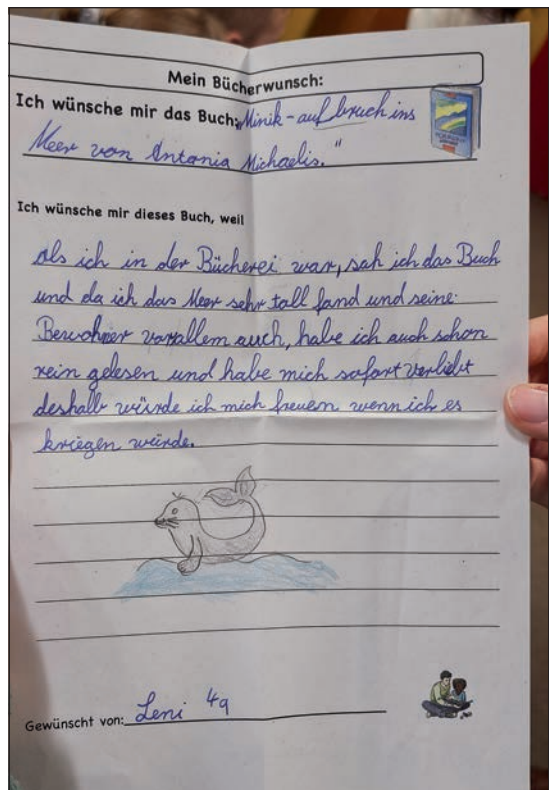 Mein Bücherwunsch:
Ich wünsche mir das Buch: „Minik - aufbruch ins
Meer von Antonia Michaelis."
Ich wünsche mir dieses Buch, weil
als ich in der Bücherei war, sah ich das Buch
und da ich das Meer sehr toll fand und seine
Bewohner vorallem auch, habe ich auch schon
rein gelesen und habe mich sofort verliebt
deshalb würde ich mich freuen wenn ich es
kriegen würde.
Gewünscht von: Leni 4a